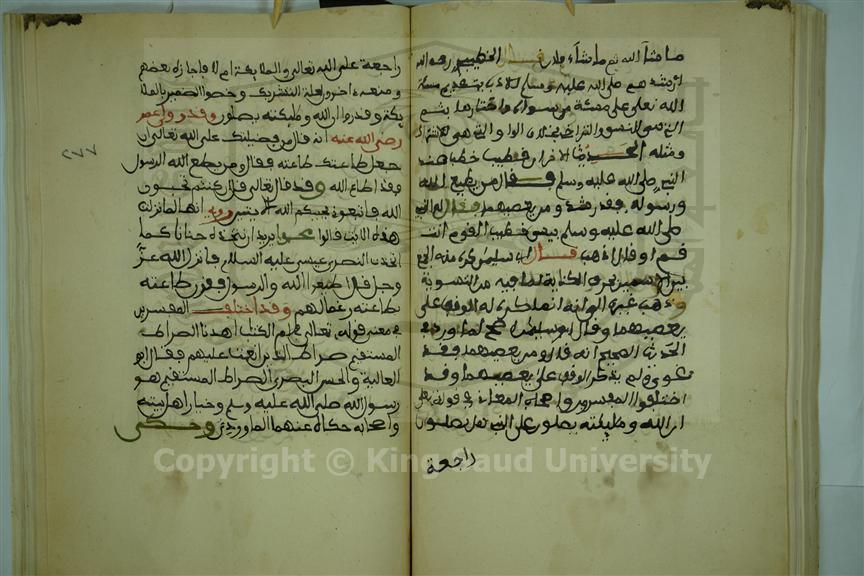 ما شآء الله ثم ما شآء فلان قال الخطيب رحمه الله
ارشدهم صلى الله عليه وسلم للادب بتقديم مشية
الله تعلى على مشية من سواه واختارها بثم
التي هي للنسق والتراخي بخلاف الواو التي هي للاشتراك
ومثله الحديث الاخر ان خطيبا خطب عند
النبي صلى الله عليه وسلم فقال من يطع الله
ورسوله فقد رشد ومن يعصهما فقال له النبي
صلى الله عليه وسلم بيس خطيب القوم انت
قم او قال اذهب قال ابو سليمن كره منه الجمع
بين الاسمين بحرف الكناية لما فيه من التسوية
وذهب غيره الى انه انما كره له الوقف على
يعصهما وقال ابو سليمن اصح لما ورد في
الحديث الصحيح انه قال ومن يعصهما فقد
غوى ولم يذكر الوقف على يعصهما وقد
اختلف المفسرون واصحاب المعاني في قوله تعلى
ان الله ومليكته يصلون على النبي هل يصلون
راجعة
راجعة على الله تعالى والملايكة ام لا فاجازه بعضهم
ومنعه اخرون لعلة التشريك وخصوا الضمير بالملا
يكة وقدروا ان الله يصلي ومليكته يصلون وقد روي عن عمر
رضي الله عنه انه قال من فضيلتك عند الله تعالى ان
جعل طاعتك طاعته فقال ومن يطع الرسول
فقد اطاع الله وقد قال تعالى قل ان كنتم تحبون
الله فاتبعوني يحببكم الله الايتين روي انه لما نزلت
هذه الاية قالوا ان محمدا يريد ان نتخذه حنانا كما
اتخذت النصرى عيسى عليه السلام فانزل الله عز
وجل قل اطيعوا الله والرسول فقرن طاعته
بطاعته رغما لهم وقد اختلف المفسرون
في معنى قوله تعالى في ام الكتاب اهدنا الصراط
المستقيم صراط الذين انعمت عليهم فقال ابو
العالية والحسن البصري الصراط المستقيم هو
رسول الله صلى الله عليه وسلم وخيار اهل بيته
واصحابه حكاه عنهما الماوردي وحكى
٢٧٧
Copyright © King Saud University